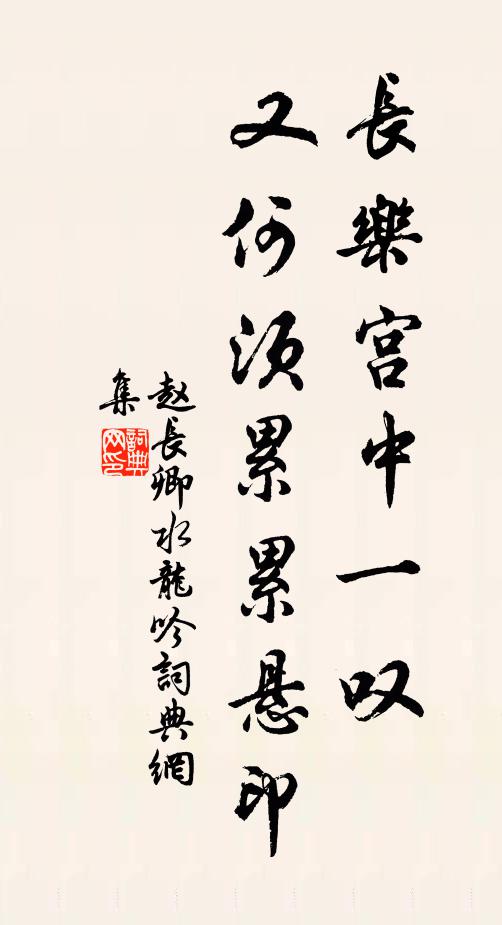 長樂宫中一叹
又何须累累悬印
赵長卿水龍吟詞典網
集
詞典网印